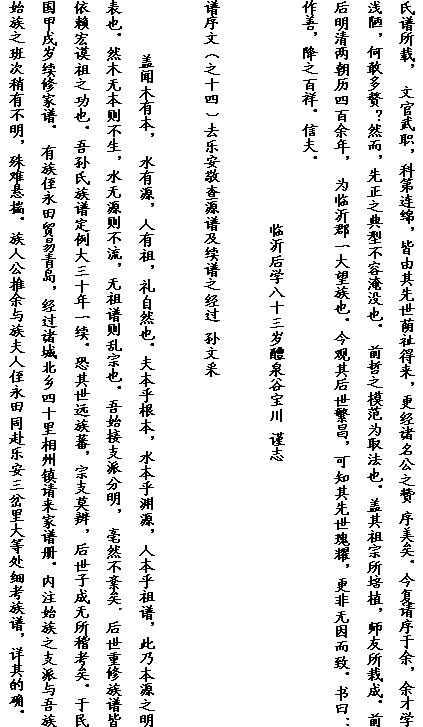 氏谱所载，　文官武职，科第连绵，皆由其先世荫祉得来，更经诸名公之赞　序美矣。今复请序于余，余才学
浅陋，何敢多赘？然而，先正之典型不容淹没也。　前哲之模范为取法也。　盖其祖宗所培植，师友所裁成。前
后明清两朝历四百余年，　为临沂郡一大望族也。今观其后世繁昌，可知其先世瑰耀，更非无因而致。书曰：
作善，降之百祥。信夫。
临沂后学八十三岁醴泉谷宝川　谨志
谱序文（之十四）去乐安敬查源谱及续谱之经过　孙文采
盖闻木有本，　水有源，人有祖，礼自然也。夫本乎根本，水本乎渊源，人本乎祖谱，此乃本源之明
表也。然木无本则不生，水无源则不流，无祖谱则乱宗也。吾始接支派分明，　毫然不紊矣．后世重修族谱皆
依赖宏谟祖之功也。吾孙氏族谱定例大三十年一续。恐其世远族蕃，宗支莫辨，后世子成无所稽考矣。于民
国甲戌岁续修家谱。　有族侄永田贸易青岛，经过诸城北乡四十里相州镇请来家谱册。内注始族之支派与吾族
始族之班次稍有不明，殊难悬揣。　族人公推余与族夫人侄永田同赴乐安三岔里大等处细考族谱，详其的确。